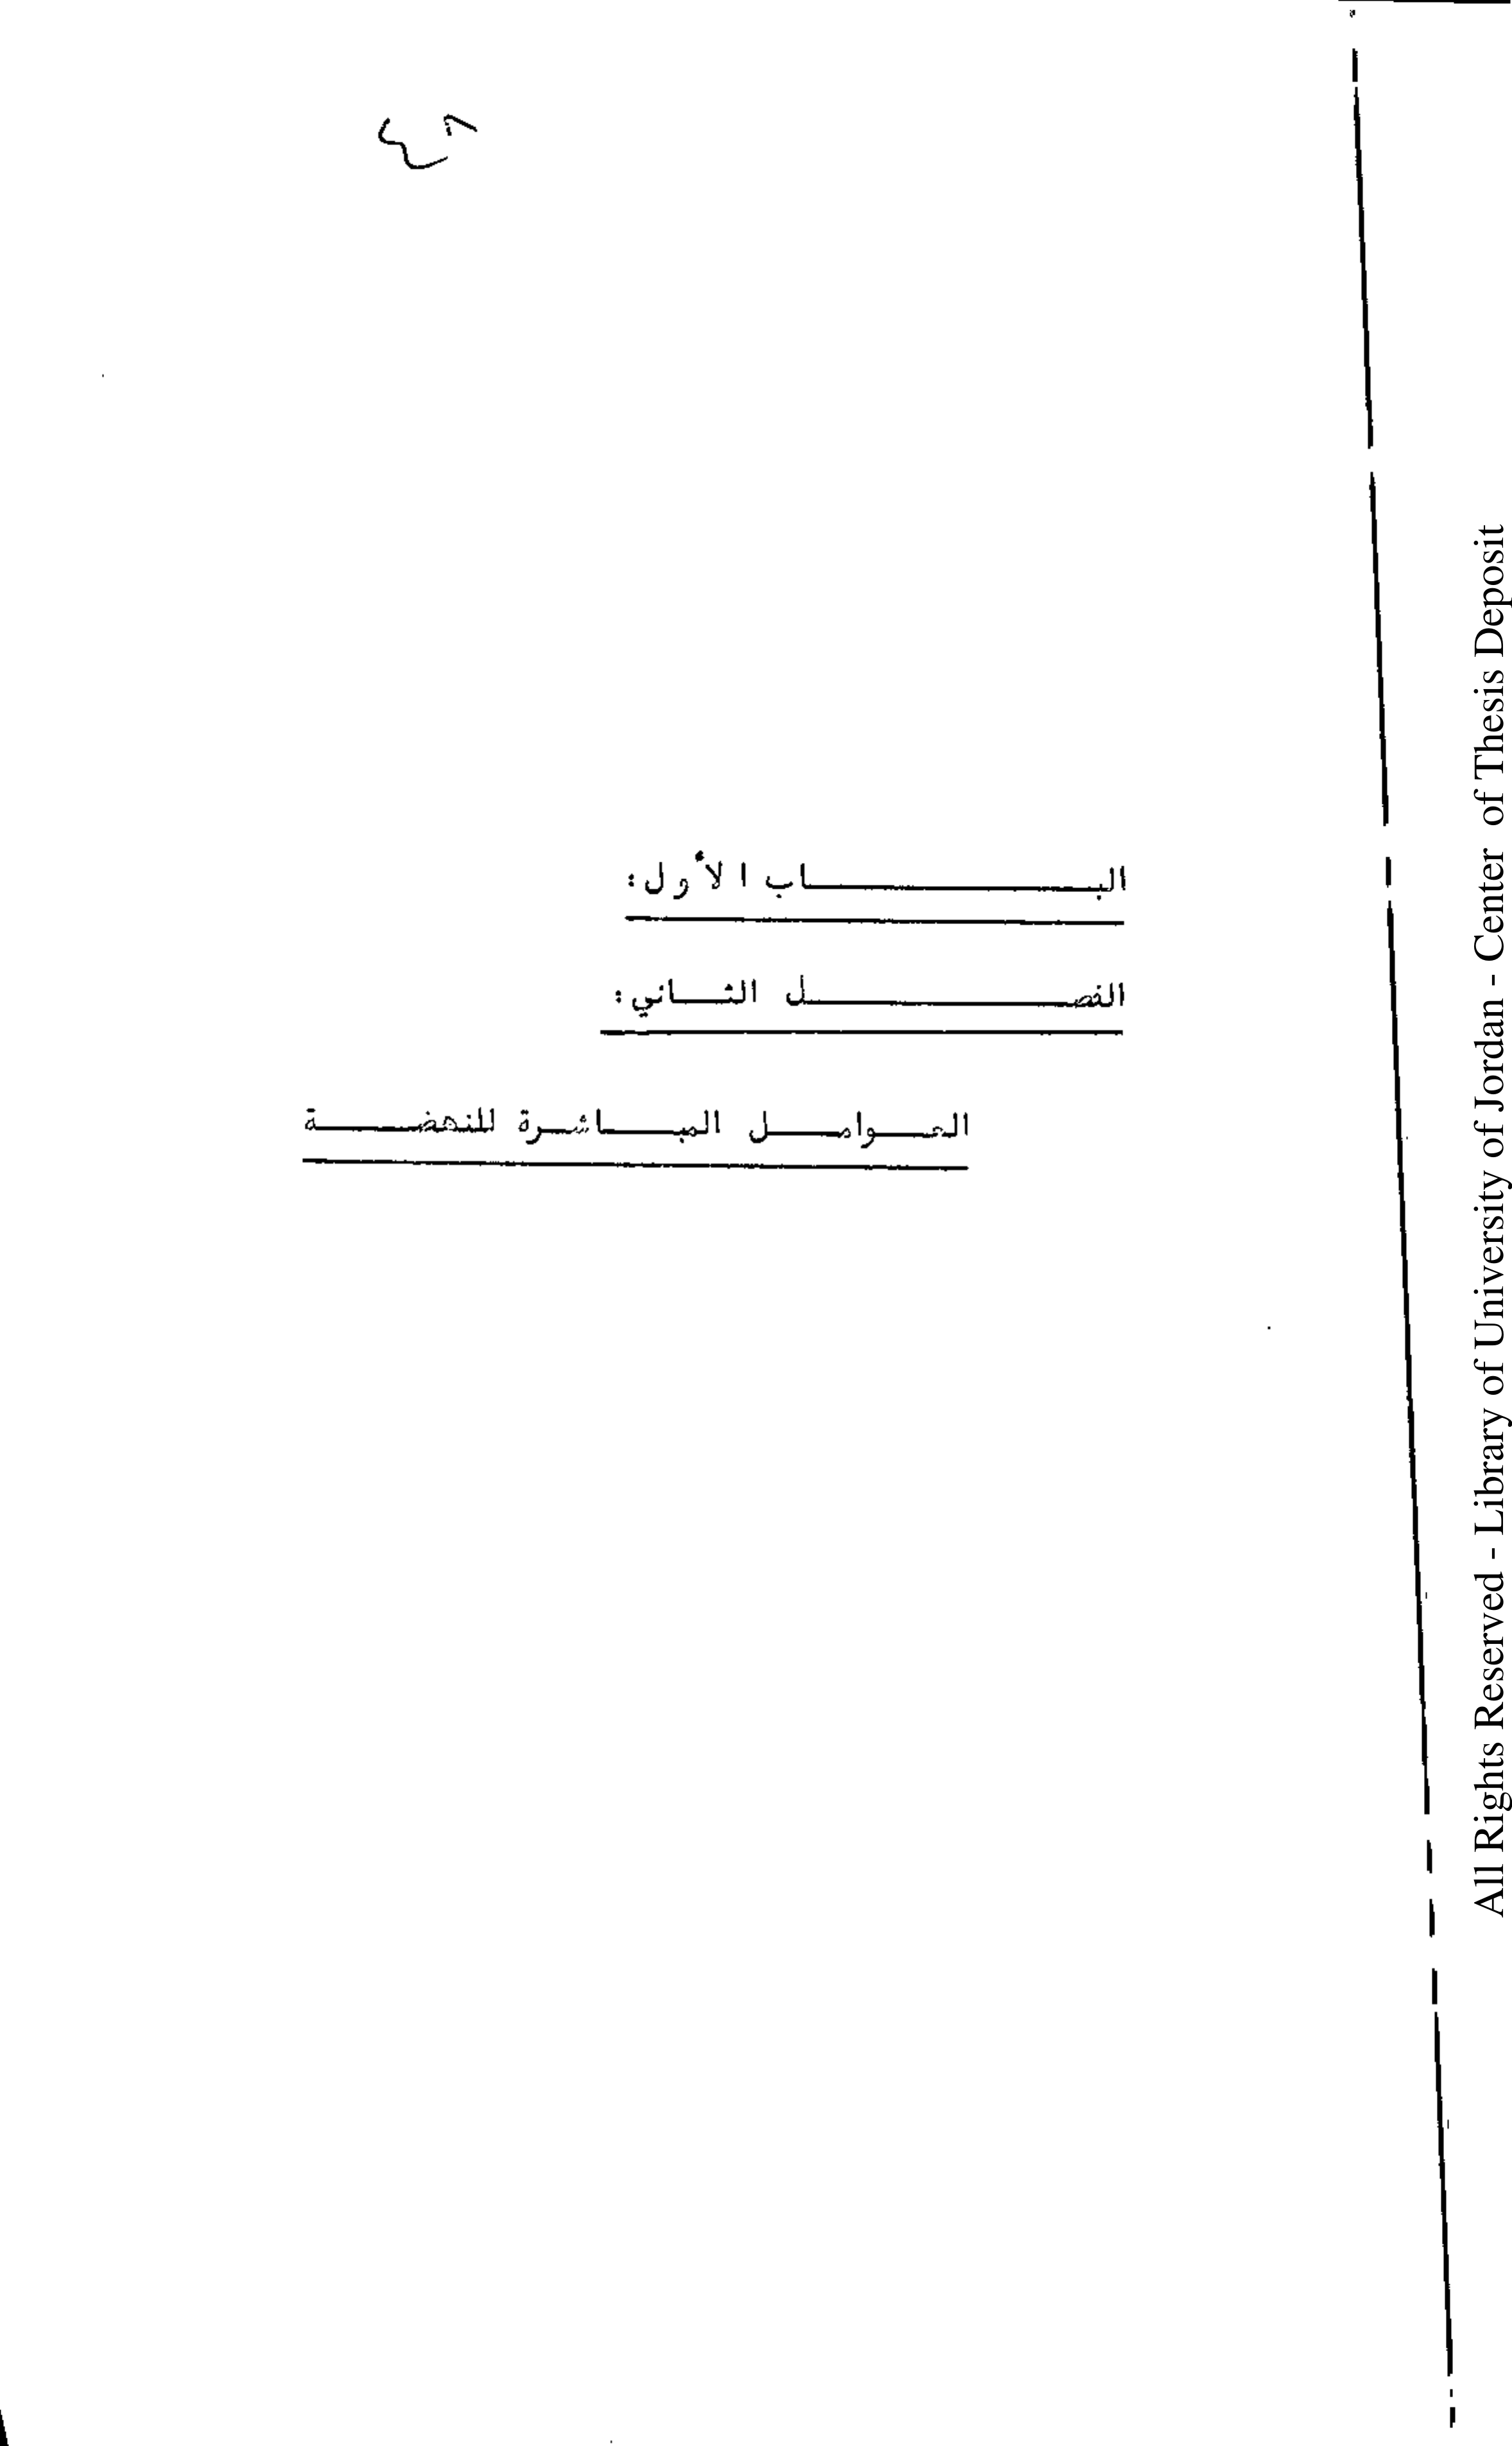 ٤٨
البـــــاب الأول:
الفصـــــل الثـــاني:
العـــوامـــل المبـــاشـرة للنهضـــة
All Rights Reserved - Library of University of Jordan - Center of Thesis Deposit